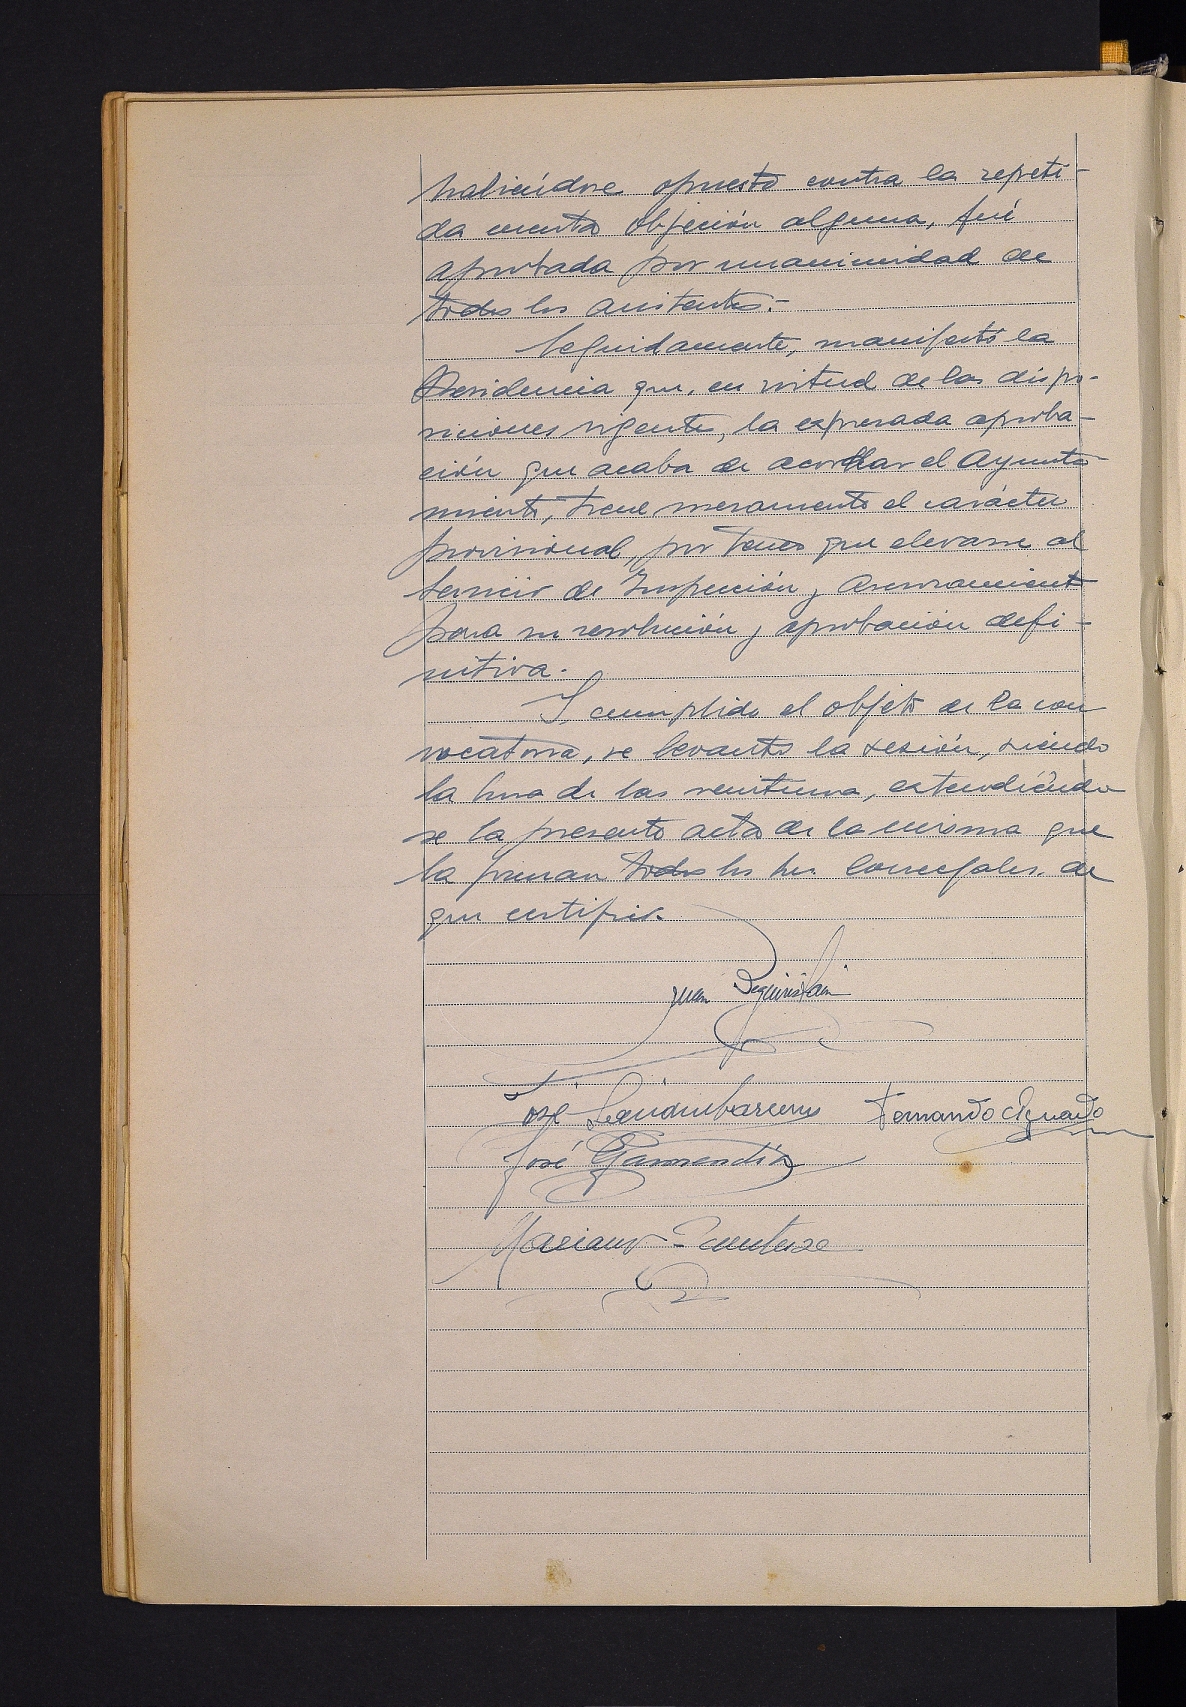 habiéndose opuesto contra la repeti-
da cuenta objeción alguna, fué
aprobada por unanimidad de
todos los asistentes.-
Seguidamente, manifestó la
Presidencia que, en virtud de las dispo-
siciones vigentes, la expresada aproba-
ción que acaba de acordar el Ayunta
miento, tiene meramente el carácter
provisional, por tener que elevarse al
Servicio de Inspección y Asesoramiento
para su resolución y aprobación defi-
nitiva.
Y cumplido el objeto de la con
vocatoria, se levantó la sesión, siendo
la hora de las veintiuna, extendiéndo
se la presente acta de la misma que
la firman todos los Sres. Concejales, de
que certifico.
Juan Beguiristain
José Fernando Aguado
José Garmendia
Mariano